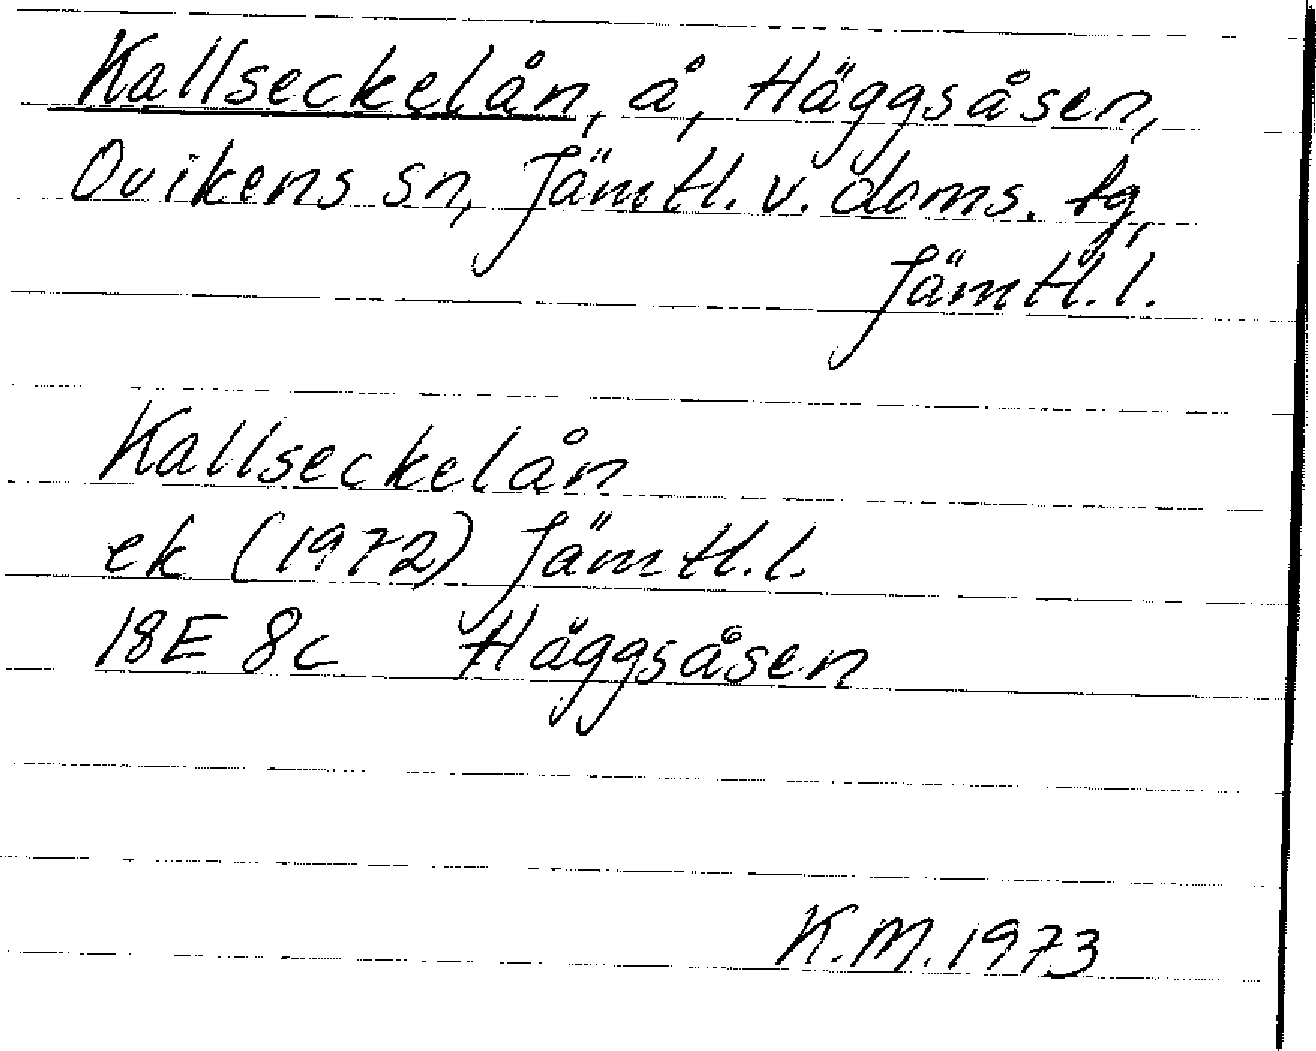 Kallseckelån, å, Häggsåsen,
Ovikens sn, Jämtl. v. doms. tg,
Jämtl. l.
Kallseckelån
ek (1972) Jämtl. l.
18E 8c Häggsåsen
K.M. 1973